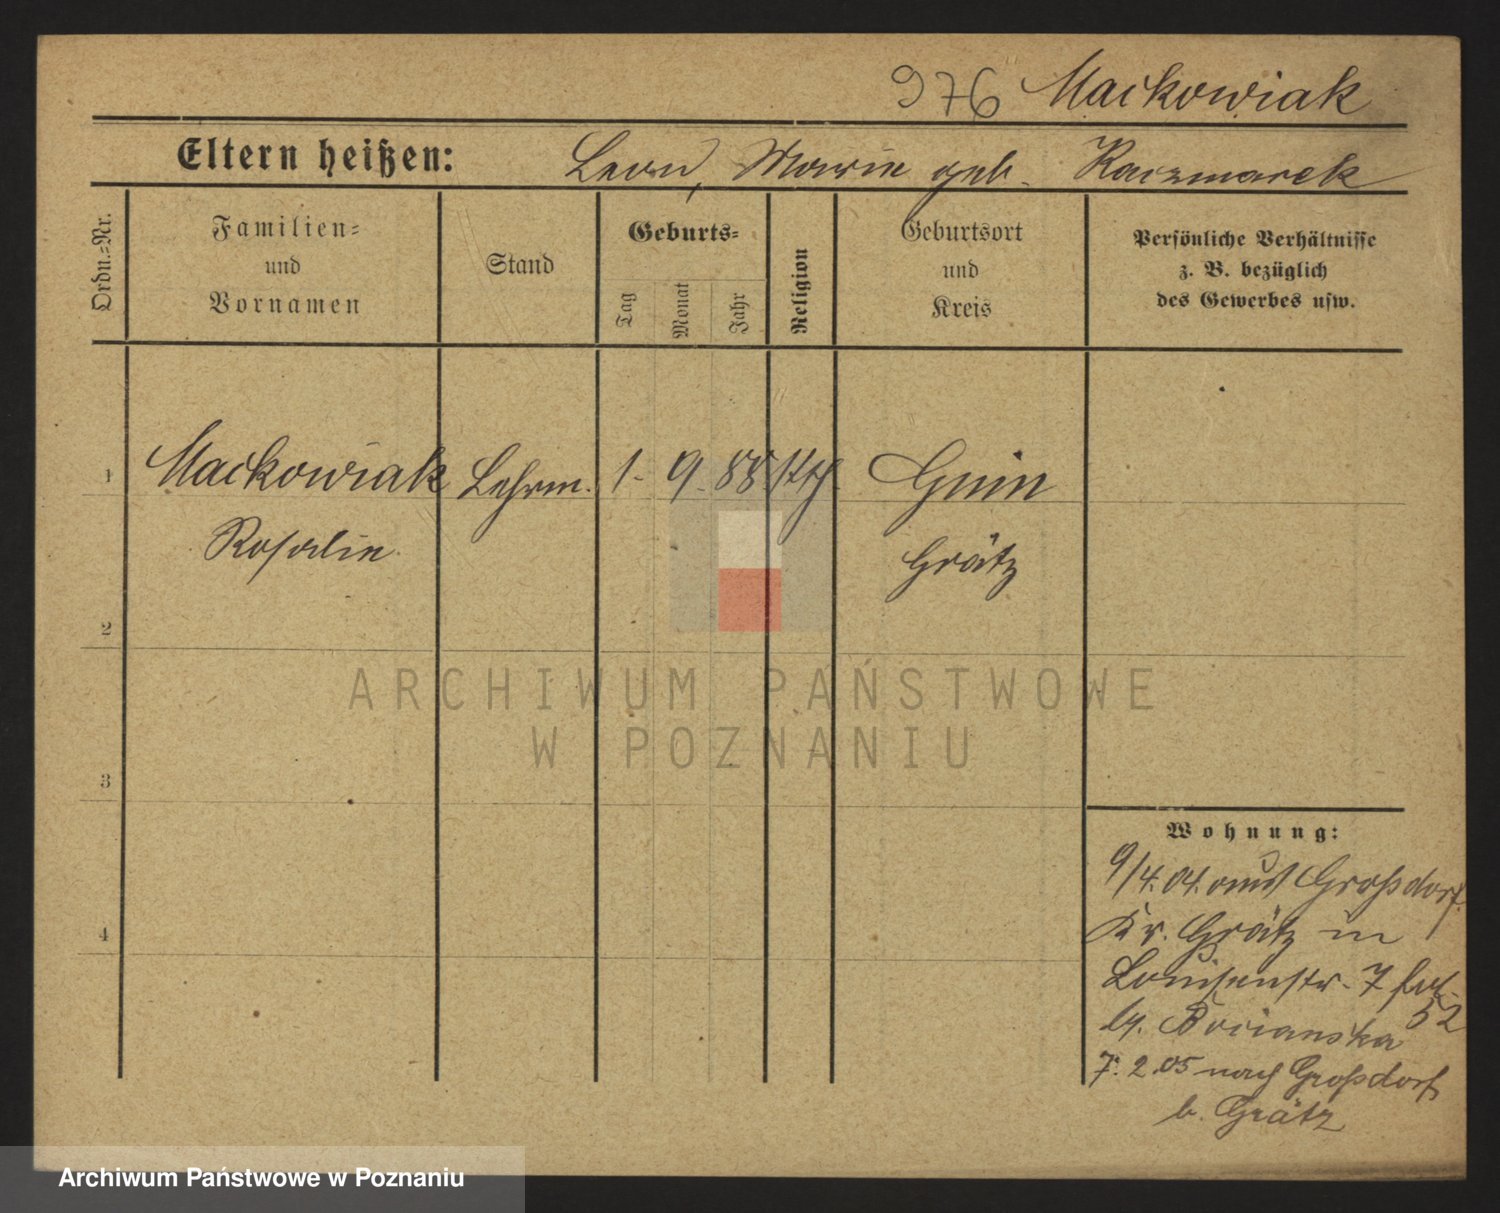 976 Mackowiak
Eltern heißen: Leon, Marie geb. Kaczmarek
Ordn.=Nr.
Familien=
und
Vornamen
Stand
Geburts=
Tag
Monat
Jahr
Religion
Geburtsort
und
Kreis
Persönliche Verhältnisse
z. B. bezüglich
des Gewerbes usw.
1 Mackowiak Lehrm. 1. 9. 88 Kth.
Rosalie Grätz
2
3
4
Wohnung:
9/4. 04. aus Großdorf
Kr. Grätz in
Louisenstr. 7
b. Bocianska 52
7. 2. 05 nach Großdorf
b. Grätz
ARCHIWUM PAŃSTWOWE
W POZNANIU
Archiwum Państwowe w Poznaniu